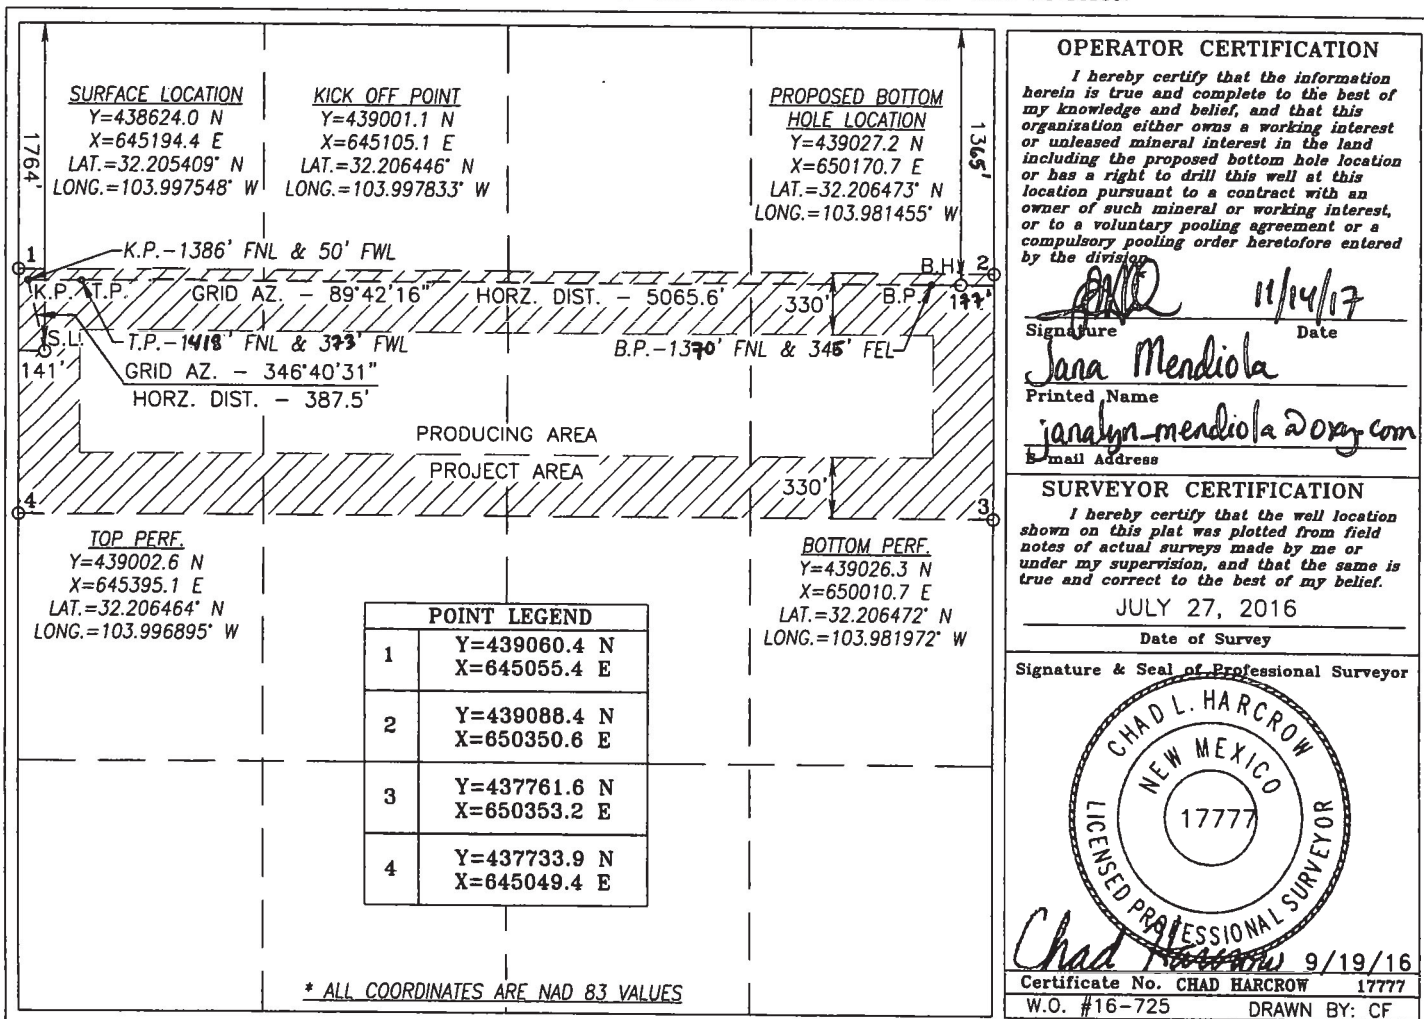 SURFACE LOCATION
Y=438624.0 N
X=645194.4 E
LAT.=32.205409° N
LONG.=103.997548° W
KICK OFF POINT
Y=439001.1 N
X=645105.1 E
LAT.=32.206446° N
LONG.=103.997833° W
PROPOSED BOTTOM
HOLE LOCATION
Y=439027.2 N
X=650170.7 E
LAT.=32.206473° N
LONG.=103.981455° W
1764'
1365'
1
K.P.-1386' FNL & 50' FWL
B.H.
2
K.P.
T.P.
GRID AZ. - 89°42'16"
HORZ. DIST. - 5065.6'
330'
B.P.
177'
S.L.
T.P.-1418' FNL & 373' FWL
B.P.-1370' FNL & 345' FEL
141'
GRID AZ. - 346°40'31"
HORZ. DIST. - 387.5'
PRODUCING AREA
PROJECT AREA
330'
4
3
TOP PERF.
Y=439002.6 N
X=645395.1 E
LAT.=32.206464° N
LONG.=103.996895° W
BOTTOM PERF.
Y=439026.3 N
X=650010.7 E
LAT.=32.206472° N
LONG.=103.981972° W
POINT LEGEND
1
Y=439060.4 N
X=645055.4 E
2
Y=439088.4 N
X=650350.6 E
3
Y=437761.6 N
X=650353.2 E
4
Y=437733.9 N
X=645049.4 E
* ALL COORDINATES ARE NAD 83 VALUES
OPERATOR CERTIFICATION
I hereby certify that the information
herein is true and complete to the best of
my knowledge and belief, and that this
organization either owns a working interest
or unleased mineral interest in the land
including the proposed bottom hole location
or has a right to drill this well at this
location pursuant to a contract with an
owner of such mineral or working interest,
or to a voluntary pooling agreement or a
compulsory pooling order heretofore entered
by the division.
11/14/17
Signature Date
Jana Mendiola
Printed Name
janalyn_mendiola@oxy.com
E-mail Address
SURVEYOR CERTIFICATION
I hereby certify that the well location
shown on this plat was plotted from field
notes of actual surveys made by me or
under my supervision, and that the same is
true and correct to the best of my belief.
JULY 27, 2016
Date of Survey
Signature & Seal of Professional Surveyor
CHAD L. HARCROW
NEW MEXICO
17777
LICENSED PROFESSIONAL SURVEYOR
Chad Harcrow 9/19/16
Certificate No. CHAD HARCROW 17777
W.O. #16-725 DRAWN BY: CF